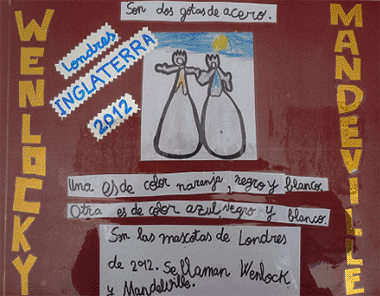 Son dos gotas de acero.
WENLOCKY
MANDEVILLE
Londres
INGLATERRA
2012
Una es de color naranja, negro y blanco.
Otra es de color azul, negro y blanco.
Son las mascotas de Londres
de 2012. Se llaman Wenlock
y Mandelville.